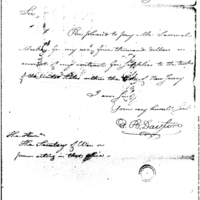 Sir,
Be pleased to pay Mr. Samuel
for my use, five thousand dollars on
account of my contract for supplies to the troops
of the United States within the of New Jersey
I am Sir,
Your very humble
The Honble
The Secretary of War or
person acting in that office.